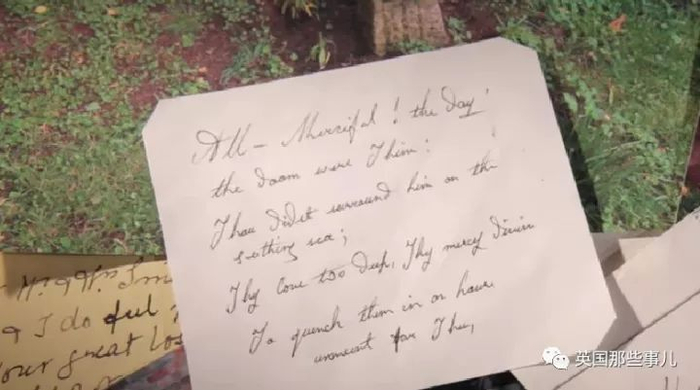 All-Merciful! the day!
the doom were Thine:
Thou didst surround him on the
seething sea;
Thy love too deep, Thy mercy divine
To quench them in an hour
unmeant for Thee,
& I do feel
your great los
英国那些事儿